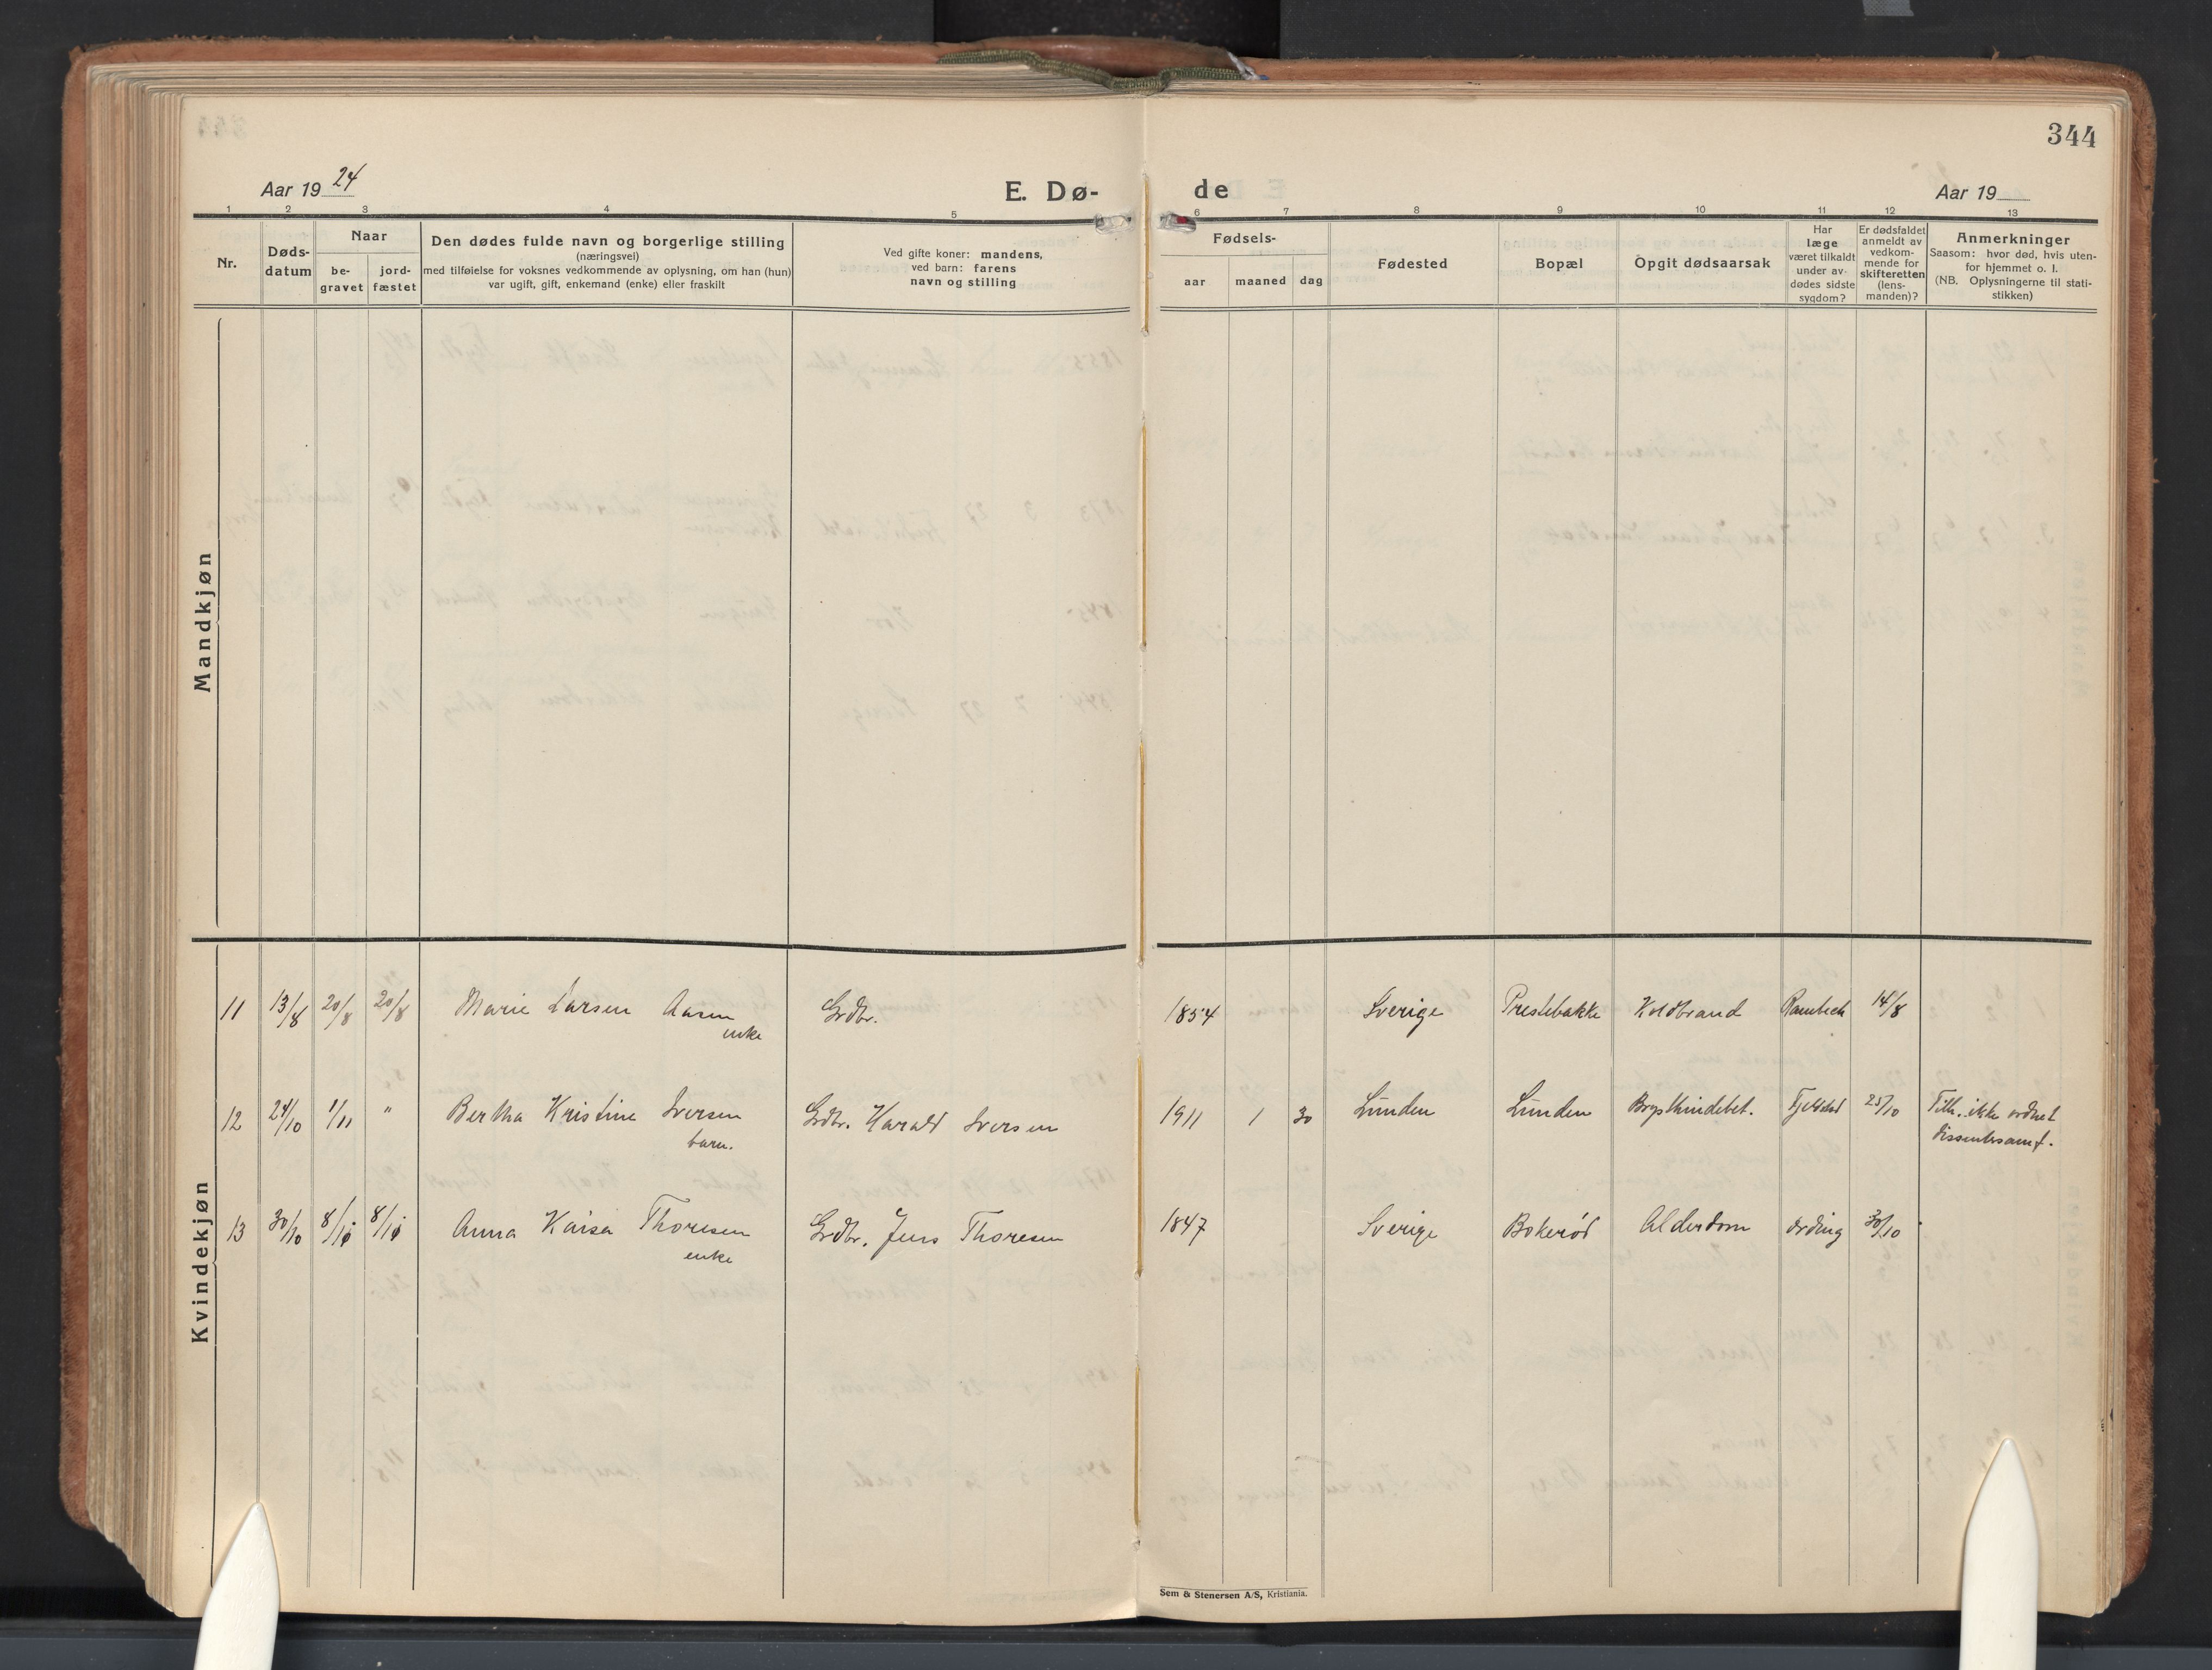 344
Aar 1924
E. Dø-
de
Aar 19
1 2 3 4 5 6 7 8 9 10 11 12 13
Nr.
Døds-
datum
Naar
be-
gravet
jord-
fæstet
Den dødes fulde navn og borgerlige stilling
(næringsvei)
med tilføielse for voksnes vedkommende av oplysning, om han (hun)
var ugift, gift, enkemand (enke) eller fraskilt
Ved gifte koner: mandens,
ved barn: farens
navn og stilling
Fødsels-
aar
maaned
dag
Fødested
Bopæl
Opgit dødsaarsak
Har
læge
været tilkaldt
under av-
dødes sidste
sygdom?
Er dødsfaldet
anmeldt av
vedkom-
mende for
skifteretten
(lens-
manden)?
Anmerkninger
Saasom: hvor død, hvis uten-
for hjemmet o. l.
(NB. Oplysningerne til stati-
stikken)
Mandkjøn
Kvindekjøn
11 13/8 20/8 20/8 Marie Larsen Aasen Grdbr. 1854 Sverige Prestebakke Koldbrand Rambech 14/8
enke
12 24/10 1/11 " Bertha Kristine Iversen Grdbr. Harald Iversen 1911 1 30 Lunden Lunden Brysthindebet. Fjeldstad 25/10 Tilh. ikke ordnet
barn. dissentersamf.
13 30/10 8/10 8/10 Anna Kaisa Thoresen Grdbr. Jens Thoresen 1847 Sverige Bokerød Alderdom Ording 30/10
enke
Sem & Stenersen A/S, Kristiania.